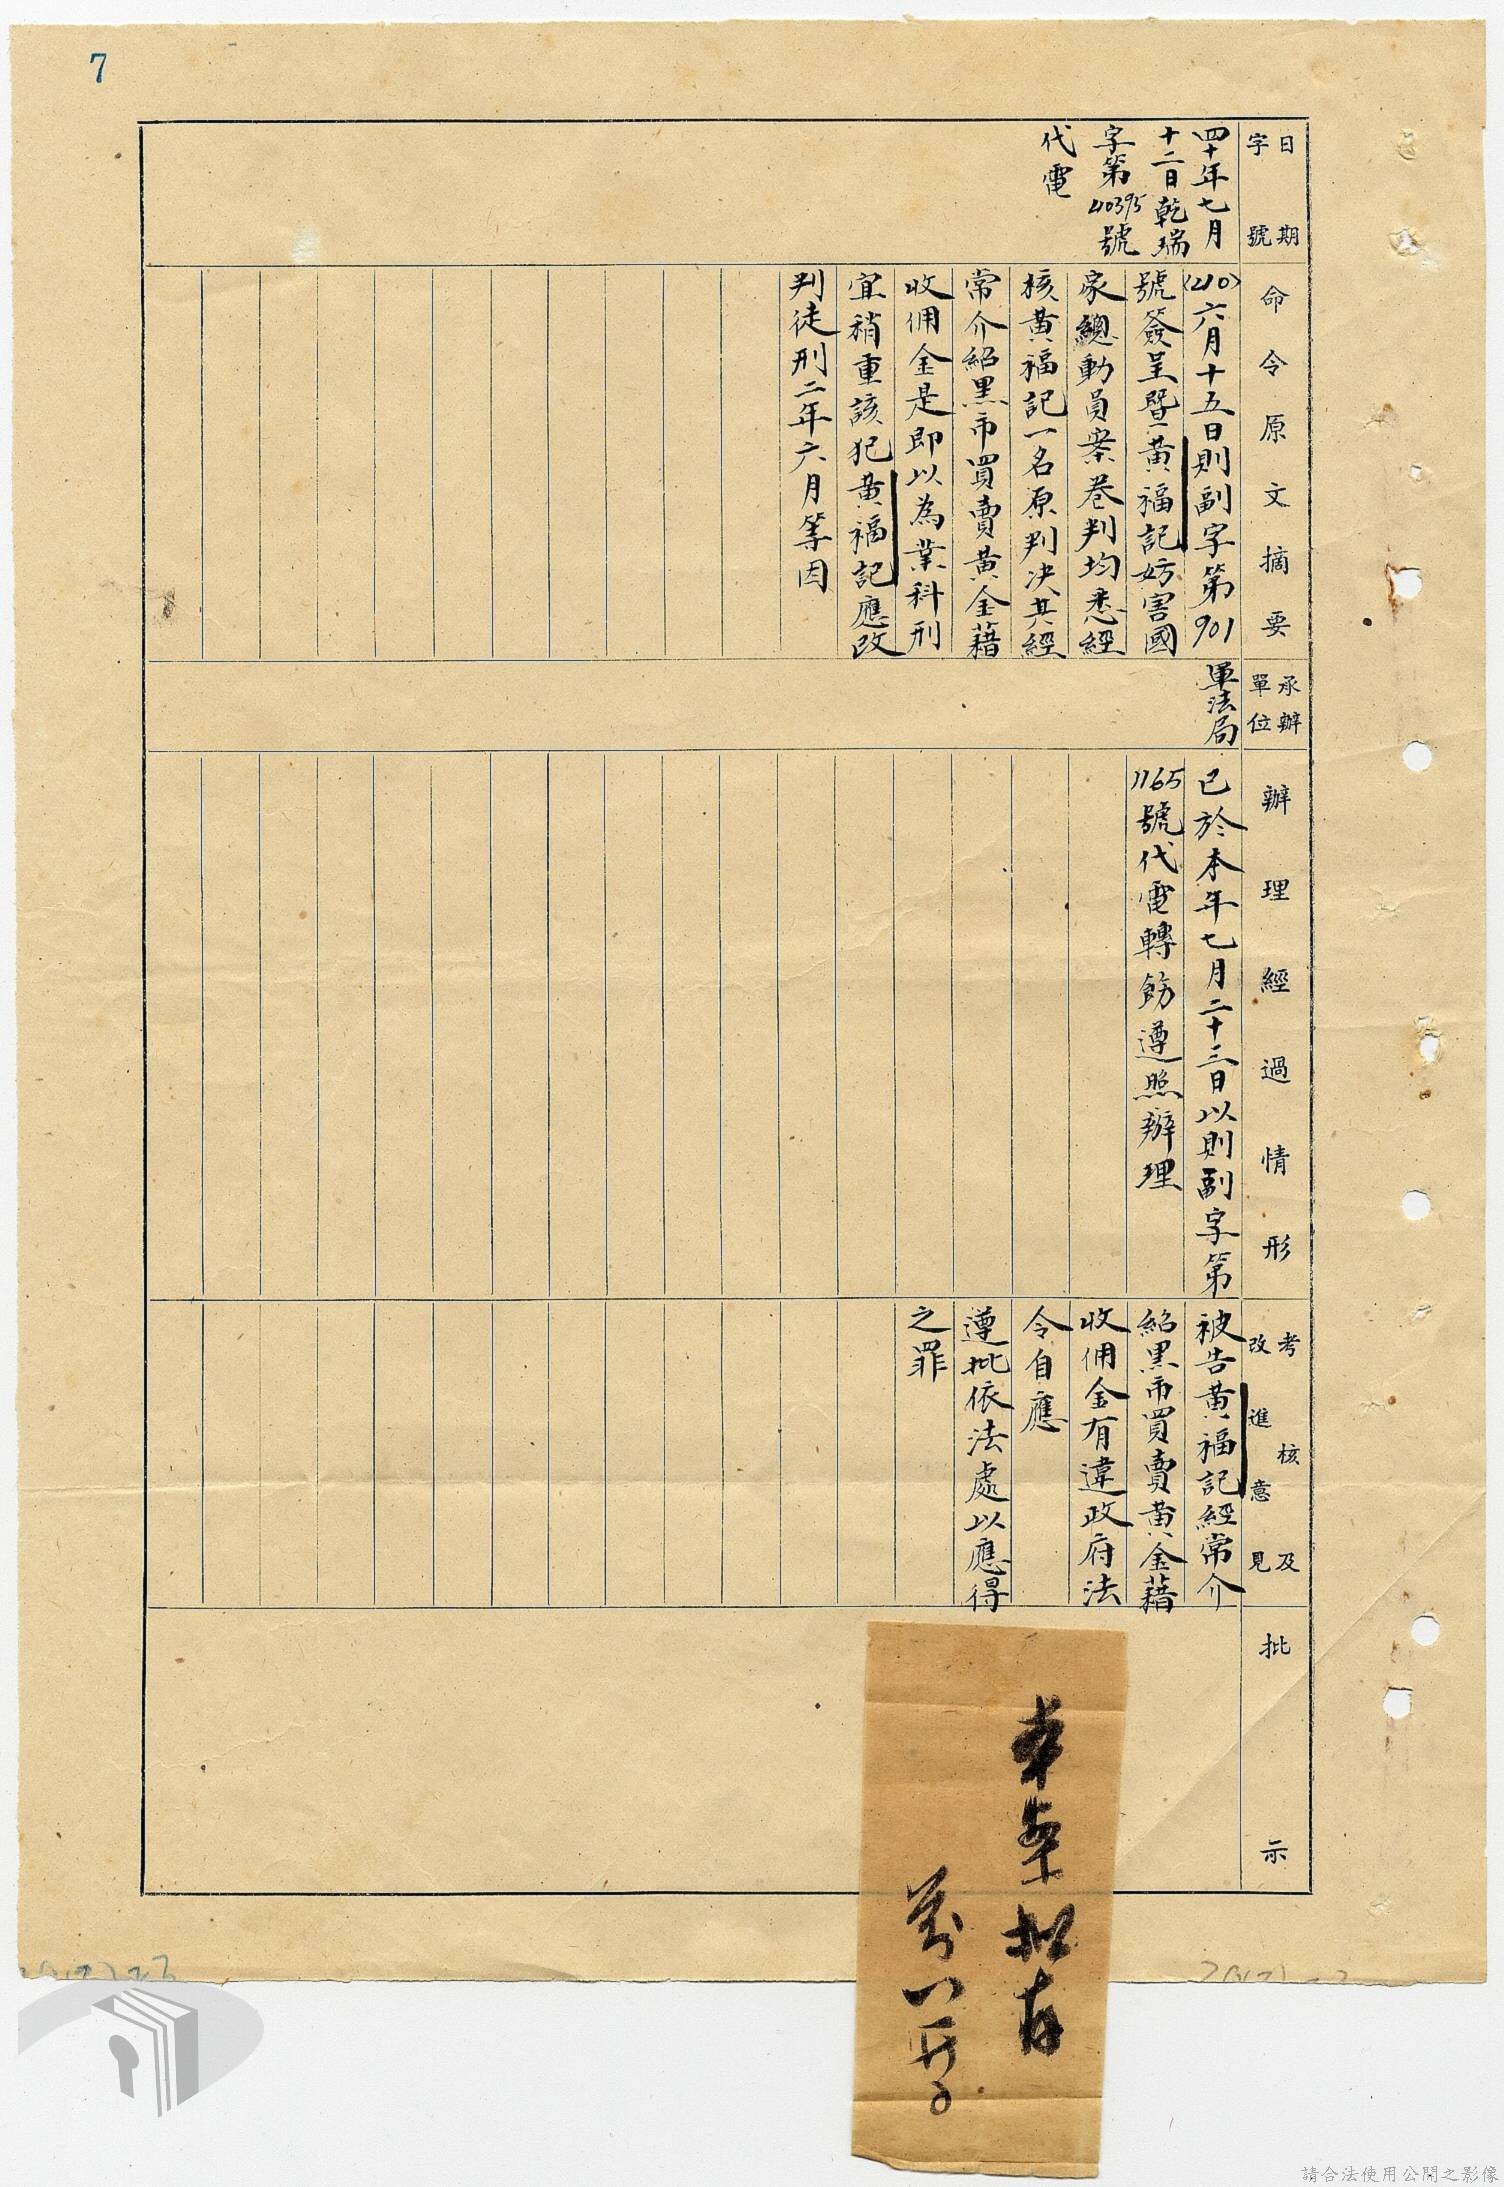 7
日期
字號
四十年七月
十二日乾瑞
字第40395號
代電
命令原文摘要
(210)六月十五日則副字第901
號簽呈暨黃福記妨害國
家總動員案卷判均悉經
核黃福記一名原判決其經
常介紹黑市買賣黃金藉
收佣金是即以為業科刑
宜稍重該犯黃福記應改
判徒刑二年六月等因
承辦
單位
軍法局
辦理經過情形
已於本年七月二十三日以則副字第
1165號代電轉飭遵照辦理
考核及
改進意見
被告黃福記經常介
紹黑市買賣黃金藉
收佣金有違政府法
令自應
遵批依法處以應得
之罪
批示
請合法使用公開之影像